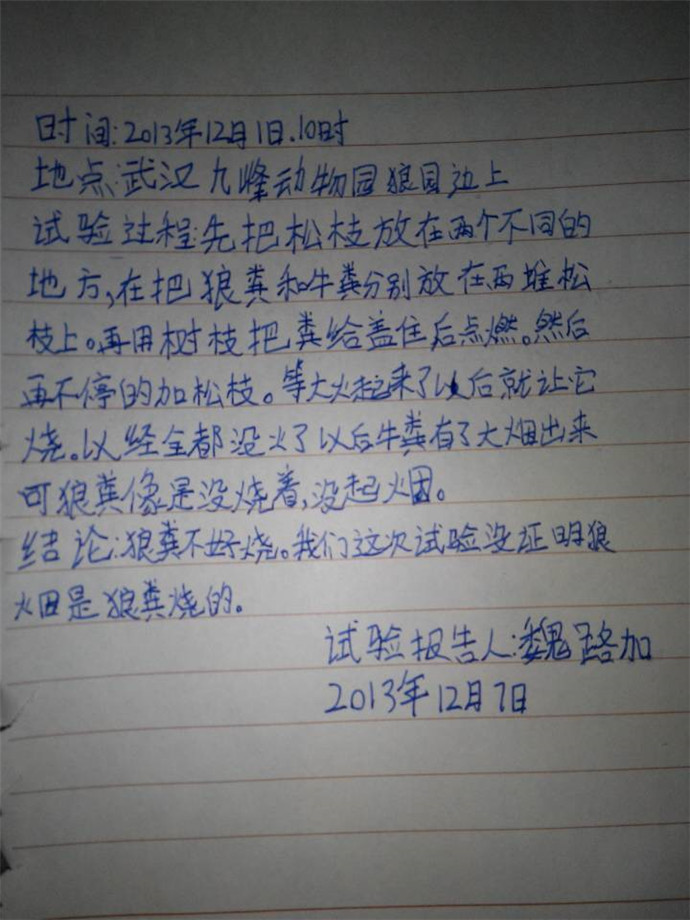 时间:2013年12月1日.10时
地点:武汉九峰动物园狼园边上
试验过程:先把松枝放在两个不同的
地方,在把狼粪和牛粪分别放在两堆松
枝上。再用树枝把粪给盖住后点燃。然后
再不停的加松枝。等大火起来了以后就让它
烧。以经全都没火了以后牛粪有了大烟出来
可狼粪像是没烧着,没起烟。
结论:狼粪不好烧。我们这次试验没证明狼
烟是狼粪烧的。
试验报告人:魏路加
2013年12月7日